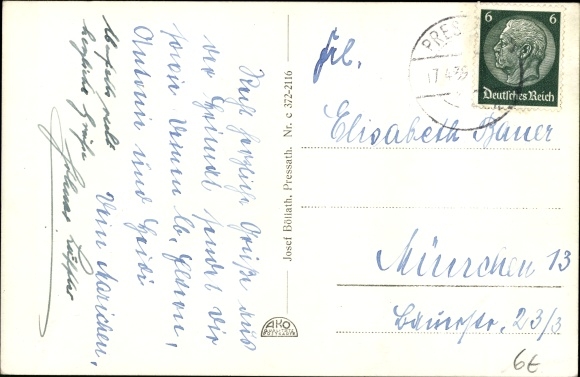 Recht herzliche Grüße aus
der Heimat sendet Dir
sowie Deinen lb. Eltern,
Antonie und Heidi
Dein Mariechen,
herzliche Grüße
Josef Böllath, Pressath. Nr. c 372-2116
AKO
PRES
17.4.35
6 6
Deutsches Reich
Frl.
Elisabeth Bauer
München 13
Bauerstr. 23/3
6€